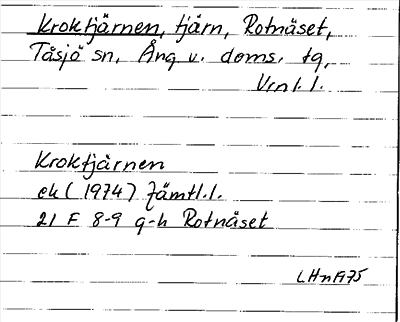 Kroktjärnen, tjärn, Rotnäset,
Tåsjö sn, Ång v. doms. tg,
Vrnl. l.
Kroktjärnen
ek (1974) Jämtl. l.
21 F 8-9 g-h Rotnäset
LHn 1975